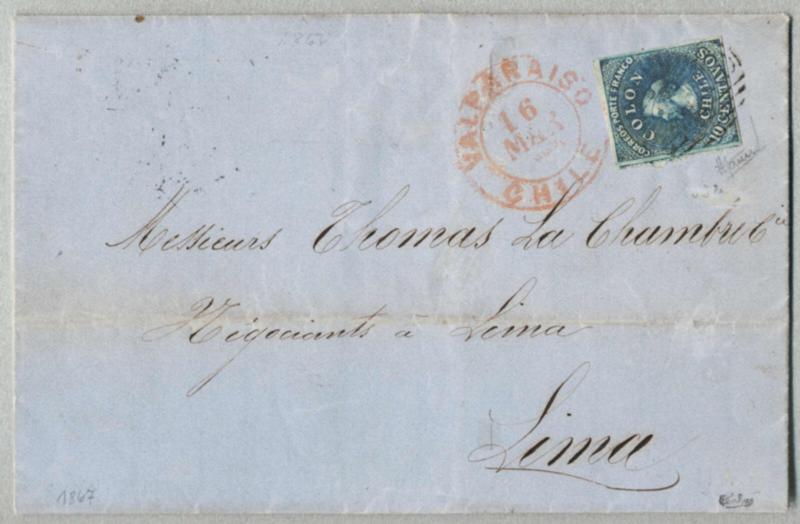 1867
VALPARAISO
16
MAR
CHILE
CORREOS PORTE FRANCO
COLON
CHILE
10 CENTAVOS
Messieurs Thomas La Chambre & Cie
Négociants à Lima
Lima
1867